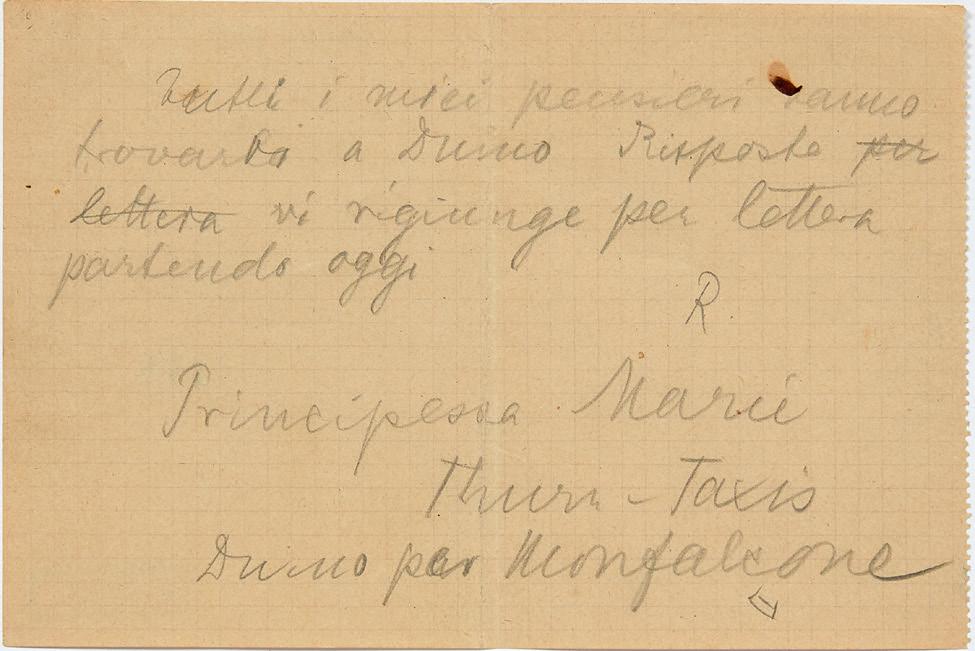 Tutti i miei pensieri vanno
trovarLa a Duino Risposta per
lettera vi rigiunge per lettera
partendo oggi
R.
Principessa Marie
Thurn-Taxis
Duino per Monfalcone